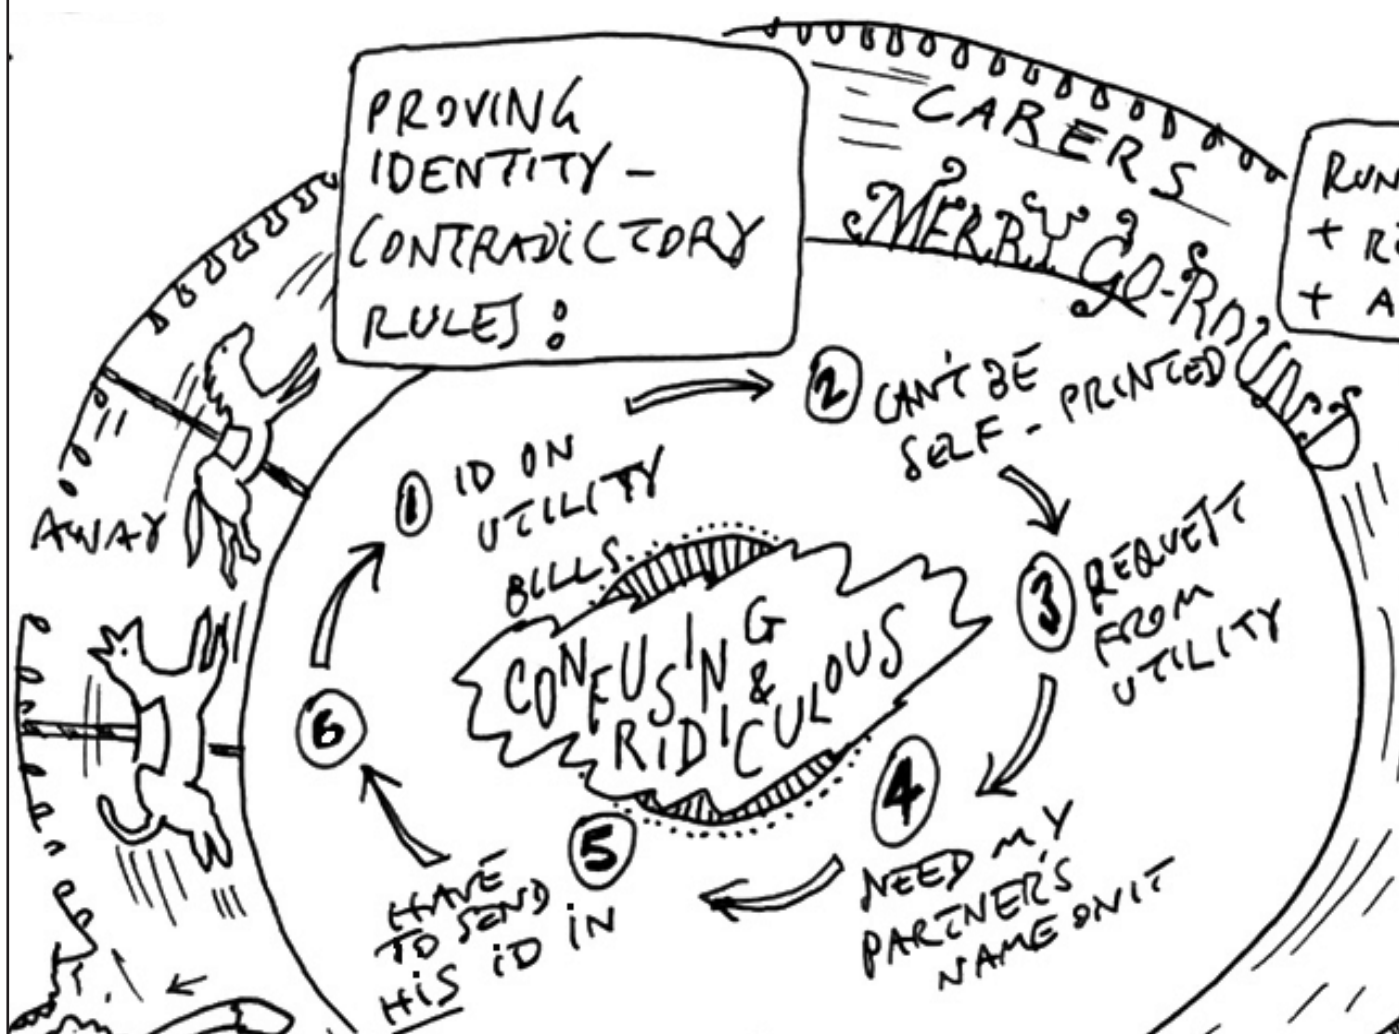 PROVING
IDENTITY -
CONTRADICTORY
RULES :
CARERS
MERRY GO-ROUND
RUN
+ RE
+ A
AWAY
1 ID ON
UTILITY
BILLS
2 CAN'T BE
SELF - PRINTED
3 REQUEST
FROM
UTILITY
4
NEED MY
PARTNER'S
NAME ON IT
5
HAVE
TO SEND
HIS ID IN
6
CONFUSING
&
RIDICULOUS